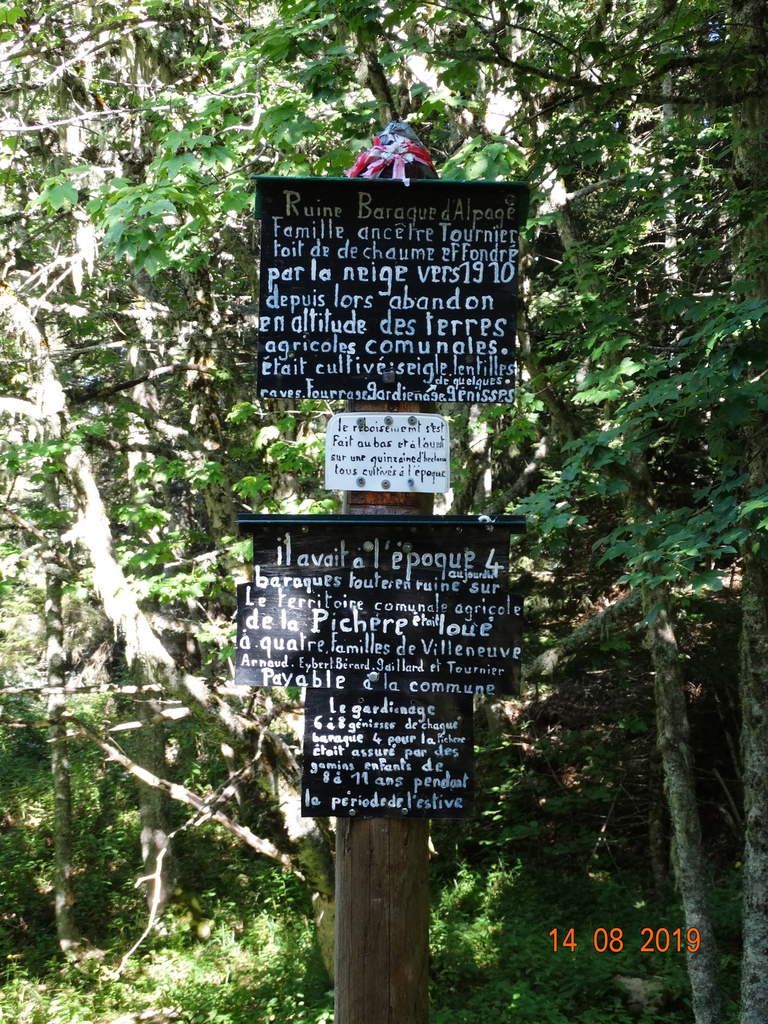 Ruine Baraque d'Alpage
Famille ancêtre Tournier
toit de de chaume effondré
par la neige vers 1910
depuis lors abandon
en altitude des terres
agricoles communales.
était cultivé seigle, lentilles
de quelques
raves. Fourrage gardienage genisses
le reboisement s'est
Fait au bas et à l'ouest
sur une quinzaine d'hectares
tous cultivés à l'époque
il avait à l'époque 4
aujourdui
baraques toute en ruine sur
Le territoire comunale agricole
de la Pichère était loué
à quatre familles de Villeneuve
Arnaud. Eybert Bérard. Gaillard et Tournier
Payable à la commune
Le gardienage
6 à 8 génisses de chaque
baraque 4 pour la Pichère
était assuré par des
gamins enfants de
8 à 11 ans pendant
la période de l'estive
14 08 2019